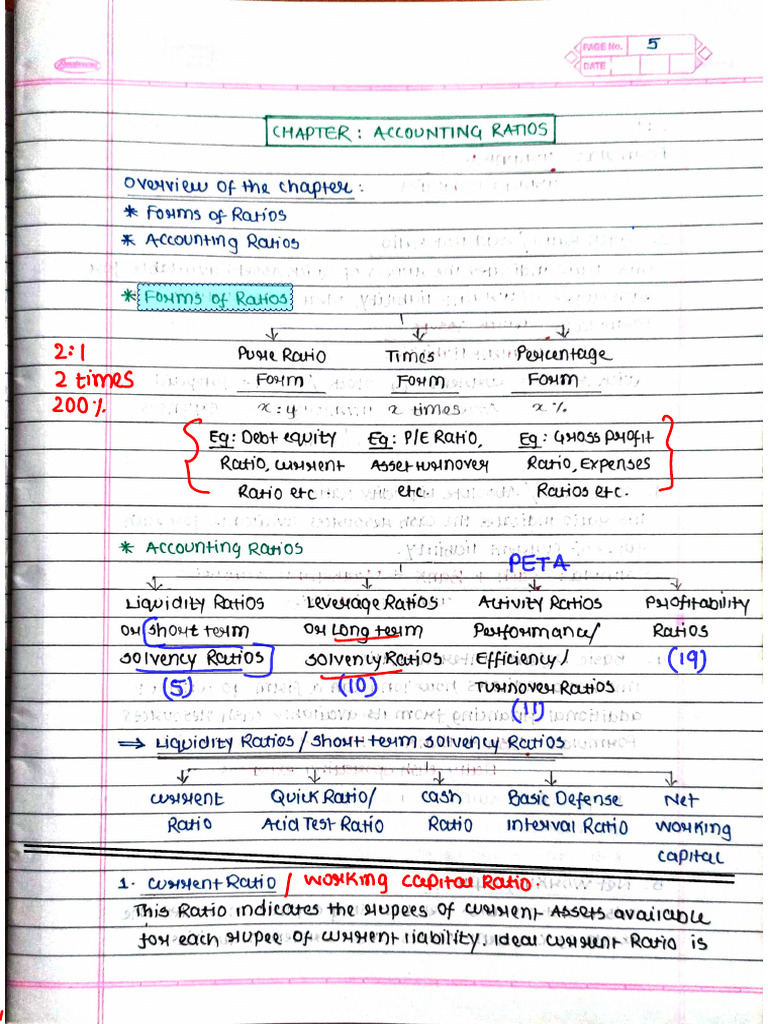 PAGE No. 5
DATE
CHAPTER: ACCOUNTING RATIOS
Overview of the chapter:
* Forms of Ratios
* Accounting Ratios
* Forms of Ratios
2:1 Pure Ratio Times Percentage
2 times Form Form Form
200% x:y x times x%
Eg: Debt equity Eg: P/E Ratio, Eg: Gross profit
Ratio, current Asset turnover Ratio, Expenses
Ratio etc. etc. Ratios etc.
* Accounting Ratios
PETA
Liquidity Ratios Leverage Ratios Activity Ratios Profitability
or short term or Long term Performance/ Ratios
solvency Ratios solvency Ratios Efficiency/ (19)
(5) (10) Turnover Ratios
(11)
⇒ Liquidity Ratios / short term solvency Ratios
current Quick Ratio/ cash Basic Defense Net
Ratio Acid Test Ratio Ratio Interval Ratio working
capital
1. current Ratio / working capital Ratio.
This Ratio indicates the rupees of current Assets available
for each rupee of current liability. Ideal current Ratio is